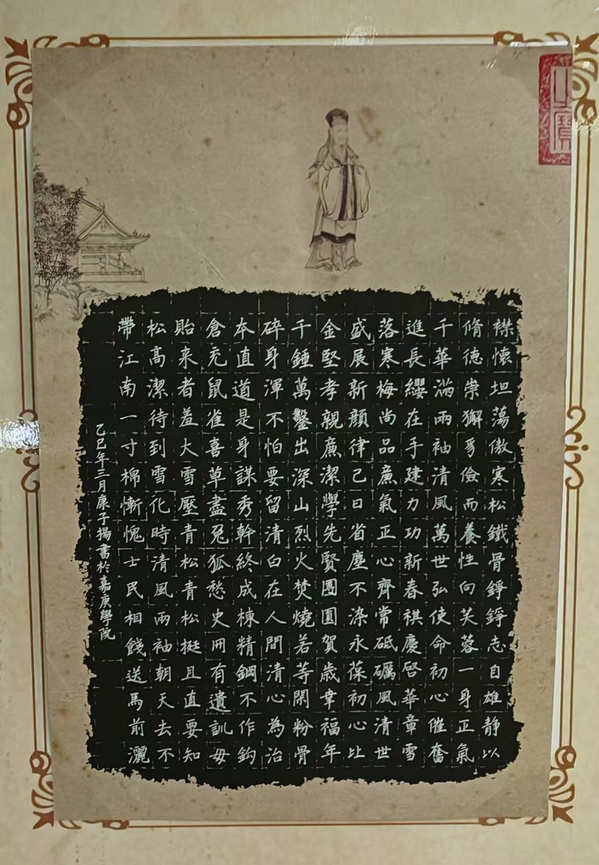 襟懷坦蕩傲寒松鐵骨錚錚志自雄靜以
脩德崇獬豸儉而養性向芙蓉一身正氣
千華滿兩袖清風萬世弘使命初心催奮
進長纓在手建力功新春祺慶啓華章雪
落寒梅尚品廉氣正心齊常砥礪風清世
盛展新顏律己日省塵不染永葆初心比
金堅孝親廉潔學先賢團圓賀歲幸福年
千錘萬鑿出深山烈火焚燒若等閑粉骨
碎身渾不怕要留清白在人間清心為治
本直道是身謀秀幹終成棟精鋼不作鈎
倉充鼠雀喜草盡兔狐愁史冊有遺訓毋
貽來者羞大雪壓青松青松挺且直要知
松高潔待到雪化時清風兩袖朝天去不
帶江南一寸棉慚愧士民相餞送馬前灑
乙巳年三月康子揚書於嘉庚學院